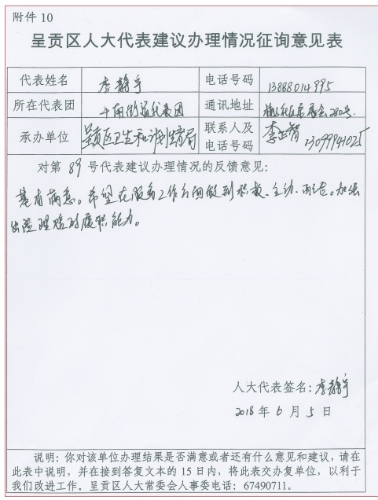 附件 10
呈贡区人大代表建议办理情况征询意见表
代表姓名 李静宇 电话号码 13888014995
所在代表团 代表团 通讯地址
承办单位 呈贡区卫生和计划生育局 联系人及电话号码 李正智 13099941025
对第 89 号代表建议办理情况的反馈意见：
基本满意。希望在服务工作方面做到积极、主动、
的履职能力。
人大代表签名：李静宇
2018 年 6 月 5 日
说明：你对该单位办理结果是否满意或者还有什么意见和建议，请在
此表中说明，并在接到答复文本的 15 日内，将此表交办复单位，以利于
我们改进工作。呈贡区人大常委会人事委电话：67490711。